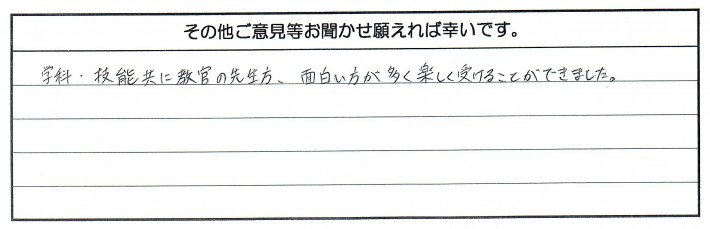 その他ご意見等お聞かせ願えれば幸いです。
学科・技能共に教官の先生方、面白い方が多く楽しく受けることができました。